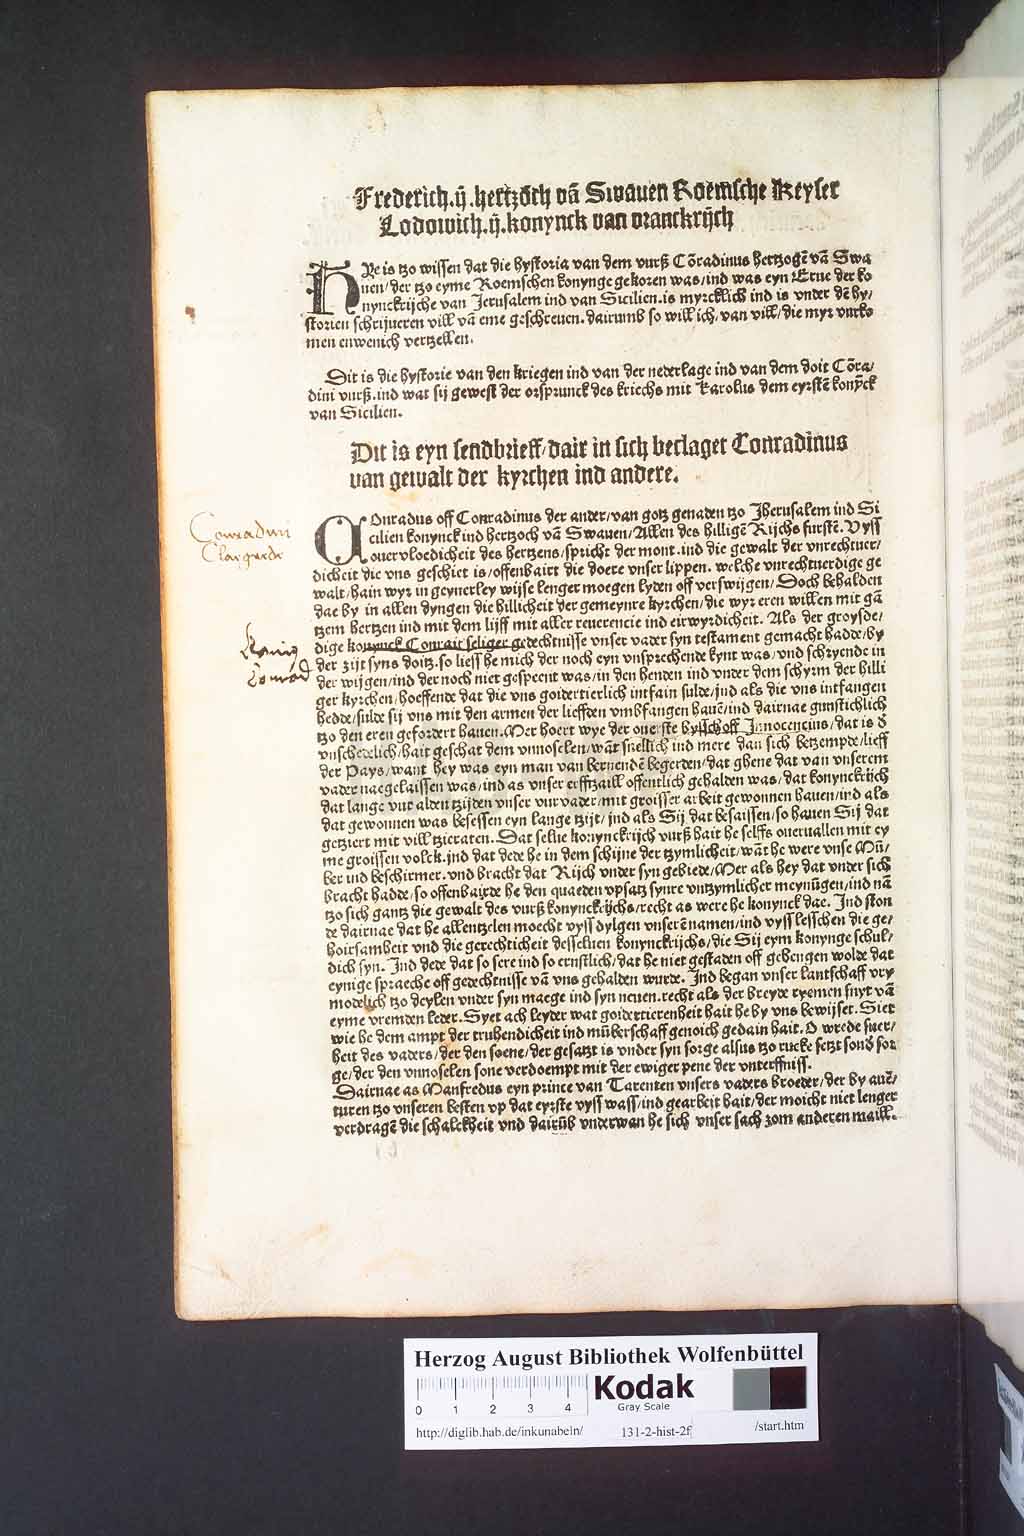 Frederich.ij. hertzoch vā Swauen Roemsche Keyser
Lodowich.ij. konynck van vranckrijch
HYe is tzo wissen dat die hystoria van dem vurß Cōradinus hertzogē vā Swa
uen/der tzo eyme Roemschen konynge gekoren was/ind was eyn Erue der ko
nynckrijche van Jerusalem ind van Sicilien.is myrcklich ind is vnder dē hy/
storien schrijueren vill vā eme geschreuen. dairumb so will ich/van vill/die myr vurko
men eynwenich vertzellen.
Dit is die hystorie van den kriegen ind van der nederlage ind van dem doit Cōra/
dini vurß.ind wat sij gewest der orsprunck des kriechs mit Karolus dem eyrstē konȳck
van Sicilien.
Dit is eyn sendbrieff/dair in sich beclaget Conradinus
van gewalt der kyrchen ind andere.
Conradini
Clargerde
COnradus off Conradinus der ander/van gotz genaden tzo Jherusalem ind Si
cilien konynck ind hertzoch vā Swauen/Allen des hilligē Rijchs furstē. Vyss
ouervloedicheit des hertzens/spricht der mont.ind die gewalt der vnrechtuer/
dicheit die vns geschiet is/offenbairt die doere vnser lippen. welche vnrechtuerdige ge
walt/hain wyr in geynerley wijse lenger moegen lyden off verswijgen/Doch behalden
dae by in allen dyngen die hillicheit der gemeynre kyrchen/die wyr eren willen mit gā
tzem hertzen ind mit dem lijff mit aller reuerencie ind eirwyrdicheit. Als der groysde/
König
Conrad
dige konynck Conrait seliger gedechtnisse vnser vader syn testament gemacht hadde/by
der zijt syns doitz.so liess he mich der noch eyn vnsprechende kynt was/vnd schryende in
der wijgen/ind der noch niet gespeent was/in den henden ind vnder dem schyrm der hilli
ger kyrchen/hoeffende dat die vns goidertierlich intfain sulde/jnd als die vns intfangen
hedde/sulde sij vns mit den armen der lieffden vmbfangen hauē/ind dairnae gunstichlich
tzo den eren gefordert hauen.Mer hoert wye der ouerste bysschoff Innocencius/dat is d̄
vnschedelich/hait geschat dem vnnoselen/wāt snellich ind mere dan sich betzempde/lieff
der Pays/want hey was eyn man van bernendē begerden/dat ghene dat van vnserem
vader naegelaissen was/ind as vnser erfftzaill offentlich gehalden was/dat konynckrich
dat lange vur alden tzijden vnser vurvader/mit groisser arbeit gewonnen hauen/ind als
dat gewonnen was besessen eyn lange tzijt/jnd als Sij dat besaissen/so hauen Sij dat
getziert mit vill tzieraten. Dat selue konynckrijch vurß hait he selffs ouervallen mit ey
me groissen volck.jnd dat dede he in dem schijne der tzymlicheit/wāt he were vnse Mū/
ber ind beschirmer.vnd bracht dat Rijch vnder syn gebiede/Mer als hey dat vnder sich
bracht hadde/so offenbairde he den quaeden vpsatz synre vntzymlicher meynūgen/ind nā
tzo sich gantz die gewalt des vurß konynckrijchs/recht as were he konynck dae. Ind ston
de dairnae dat he allentzelen moecht vyss dylgen vnserē namen/ind vyss lesschen die ge/
hoirsamheit vnd die gerechticheit desseluen konynckrijchs/die Sij eym konynge schul/
dich syn. Jnd dede dat so sere ind so ernstlich/dat he niet gestaden off gehengen wolde dat
eynige spraeche off gedechtnisse vā vns gehalden wurde. Jnd began vnser lantschaff vry
modelich tzo deylen vnder syn maege ind syn neuen.recht als der breyde ryemen snyt vā
eyme vremden leder.Syet ach leyder wat goidertierenheit hait he by vns bewijset. Siet
wie he dem ampt der truhendicheit ind mūberschaff genoich gedain hait. O wrede suer/
heit des vaders/der den soene/der gesatzt is vnder syn sorge alsus tzo rucke setzt sond̄ sor
ge/der den vnnoselen sone verdoempt mit der ewiger pene der vnterffniss.
Dairnae as Manfredus eyn prince van Tarenten vnsers vaders broeder/der by auē/
turen tzo vnseren besten vp dat eyrste vyss wass/ind gearbeit hait/der moicht niet lenger
verdragē die schalckheit vnd dairūb vnderwan he sich vnser sach zom anderen maill.
Herzog August Bibliothek Wolfenbüttel
0 1 2 3 4
Kodak
Gray Scale
http://diglib.hab.de/inkunabeln/ 131-2-hist-2f /start.htm